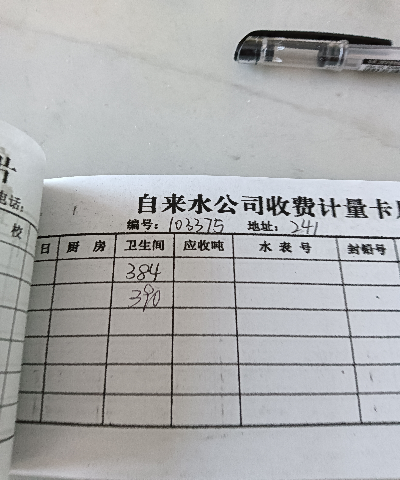 自来水公司收费计量卡
编号：103375 地址：241
日 厨房 卫生间 应收吨 水表号 封铅号
384
390
片
电话：
校